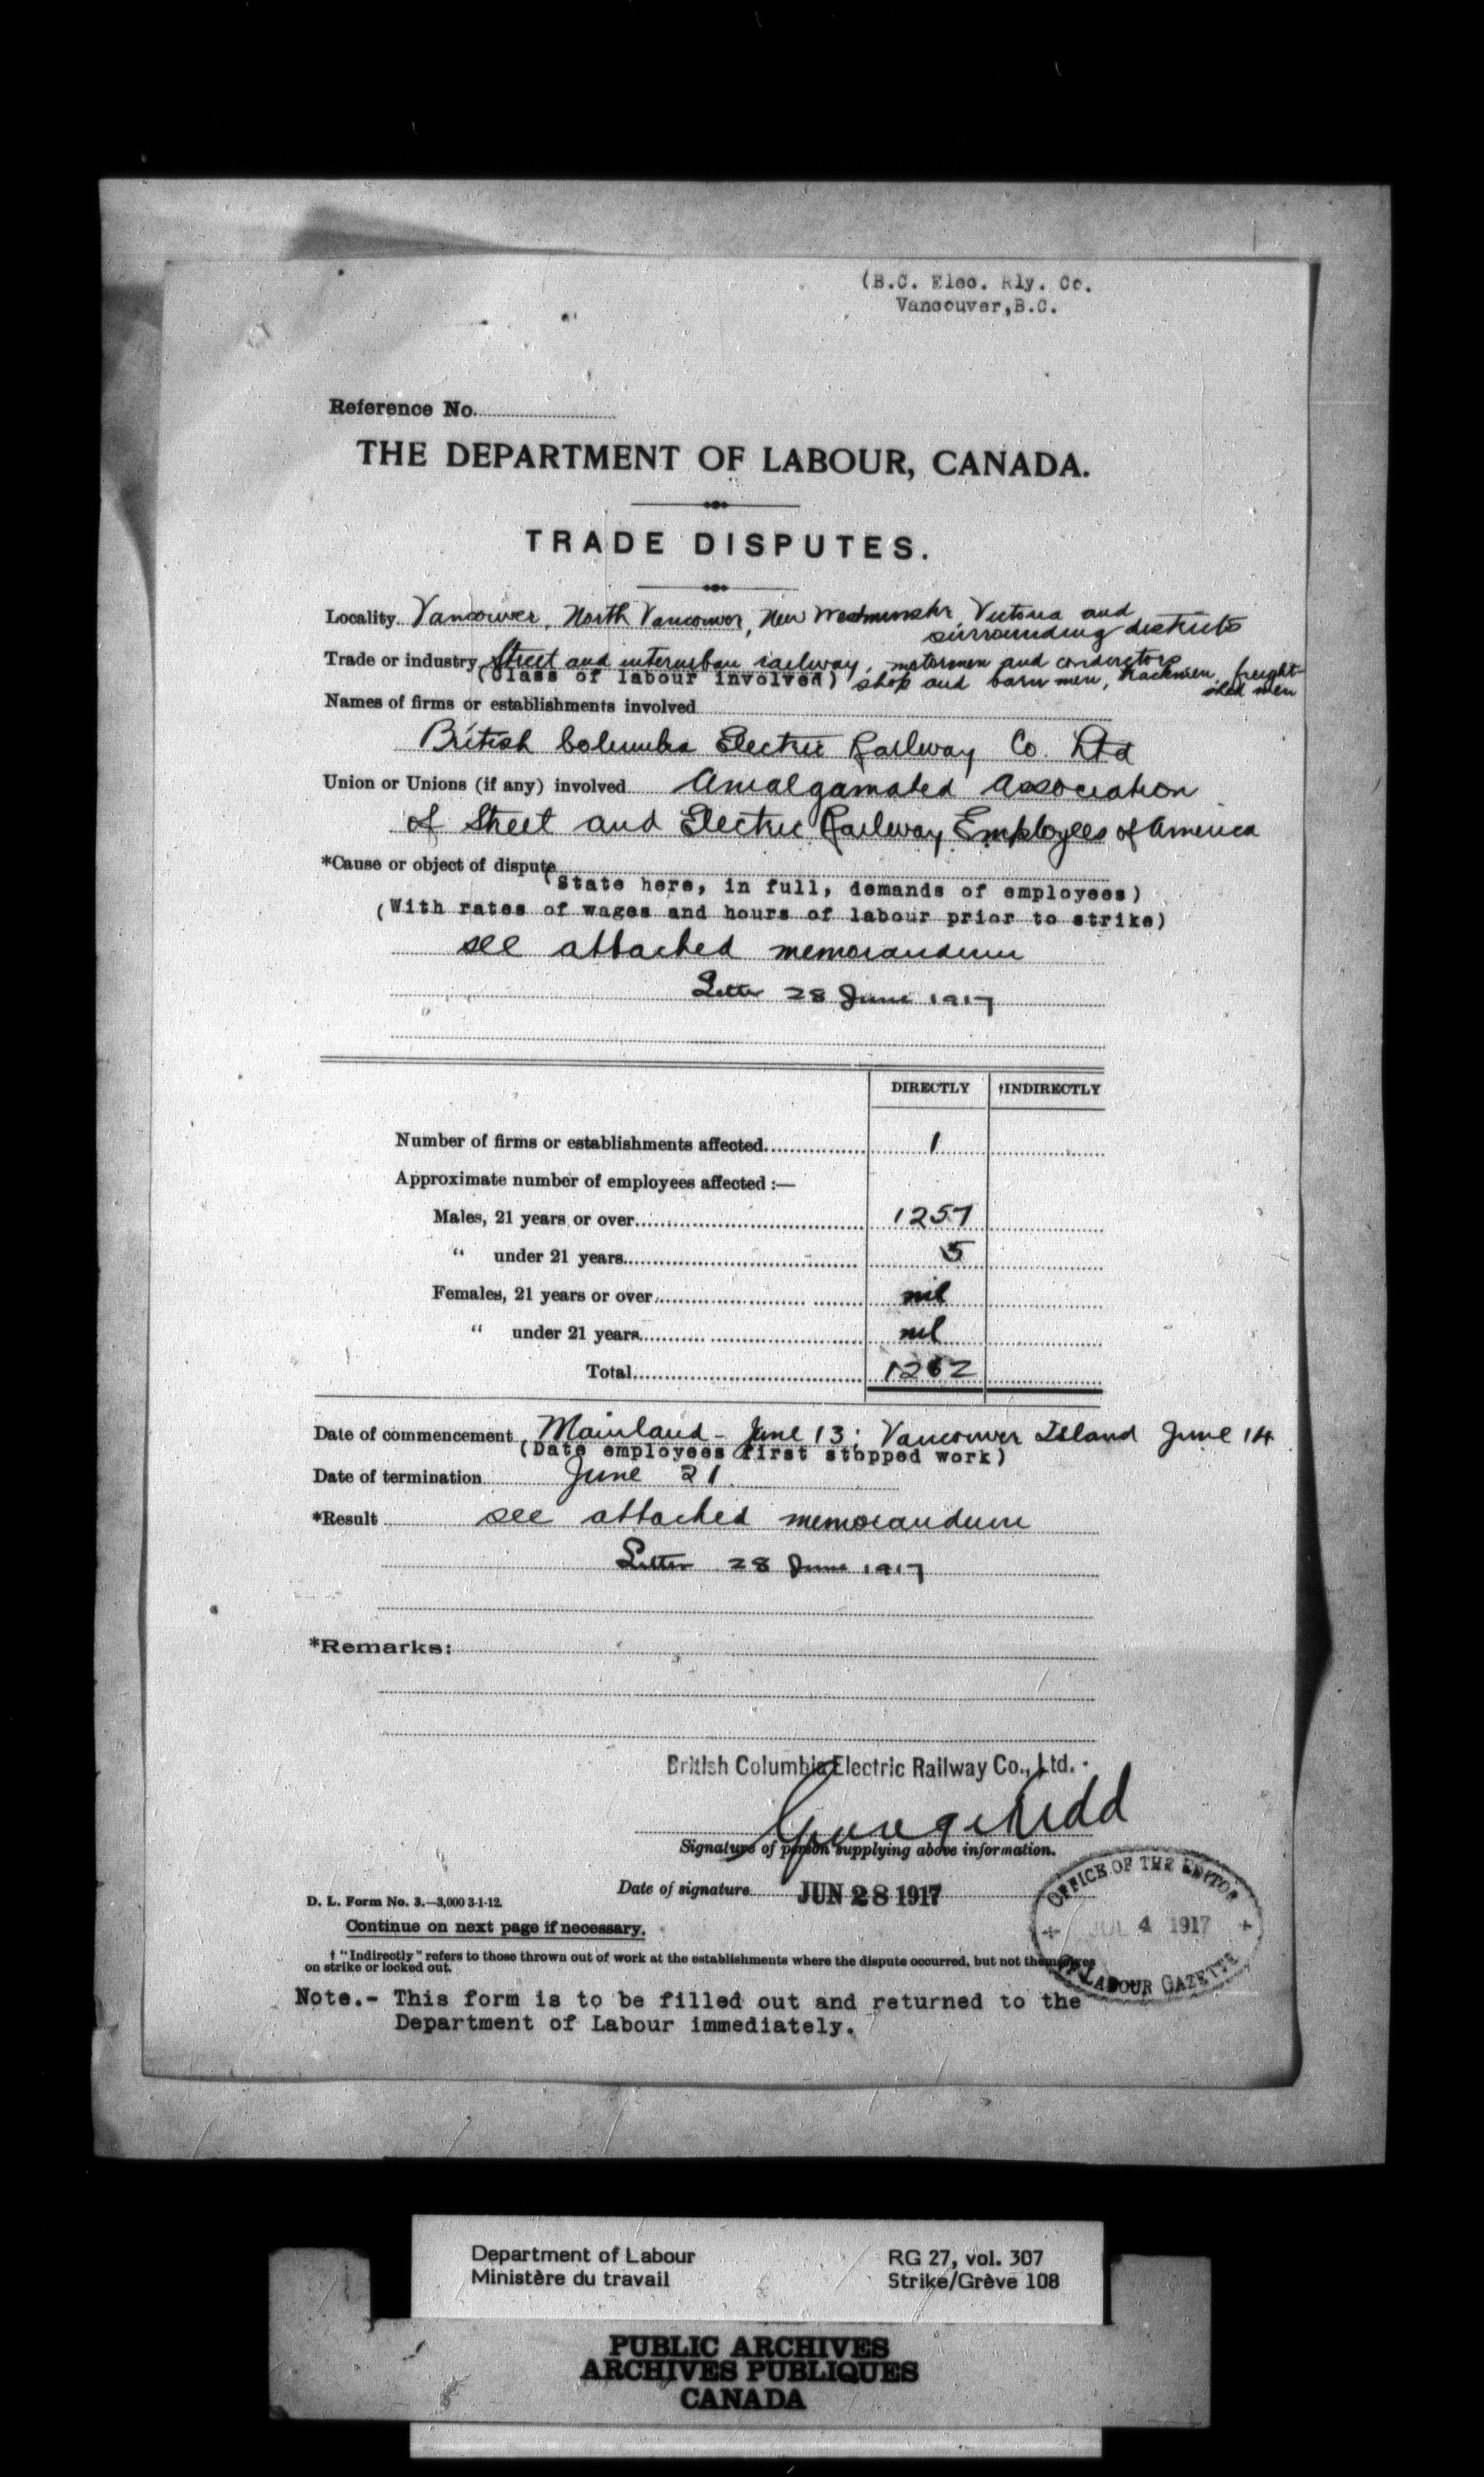 (B.C. Elec. Rly. Co.
Vancouver,B.C.
Reference No.
THE DEPARTMENT OF LABOUR, CANADA.
TRADE DISPUTES.
Locality Vancouver, North Vancouver, New Westminster, Victoria and
surrounding districts
Trade or industry Street and interurban railway, motormen and conductors
(Class of labour involved) shop and barn men, trackmen, freight-
shed men
Names of firms or establishments involved
British Columbia Electric Railway Co. Ltd
Union or Unions (if any) involved Amalgamated Association
of Street and Electric Railway Employees of America
*Cause or object of dispute
(State here, in full, demands of employees)
(With rates of wages and hours of labour prior to strike)
see attached memorandum
Letter 28 June 1917
DIRECTLY †INDIRECTLY
Number of firms or establishments affected 1
Approximate number of employees affected :—
Males, 21 years or over 1257
“ under 21 years 5
Females, 21 years or over nil
“ under 21 years nil
Total 1262
Date of commencement Mainland - June 13; Vancouver Island June 14
(Date employees first stopped work)
Date of termination June 21.
*Result see attached memorandum
Letter 28 June 1917
*Remarks:
British Columbia Electric Railway Co., Ltd.
George Kidd
Signature of person supplying above information.
Date of signature JUN 28 1917
OFFICE OF THE EDITOR
JUL 4 1917
OF LABOUR GAZETTE
D. L. Form No. 3.—3,000 3-1-12.
Continue on next page if necessary.
† “Indirectly” refers to those thrown out of work at the establishments where the dispute occurred, but not themselves
on strike or locked out.
Note.- This form is to be filled out and returned to the
Department of Labour immediately.
Department of Labour
Ministère du travail
RG 27, vol. 307
Strike/Grève 108
PUBLIC ARCHIVES
ARCHIVES PUBLIQUES
CANADA